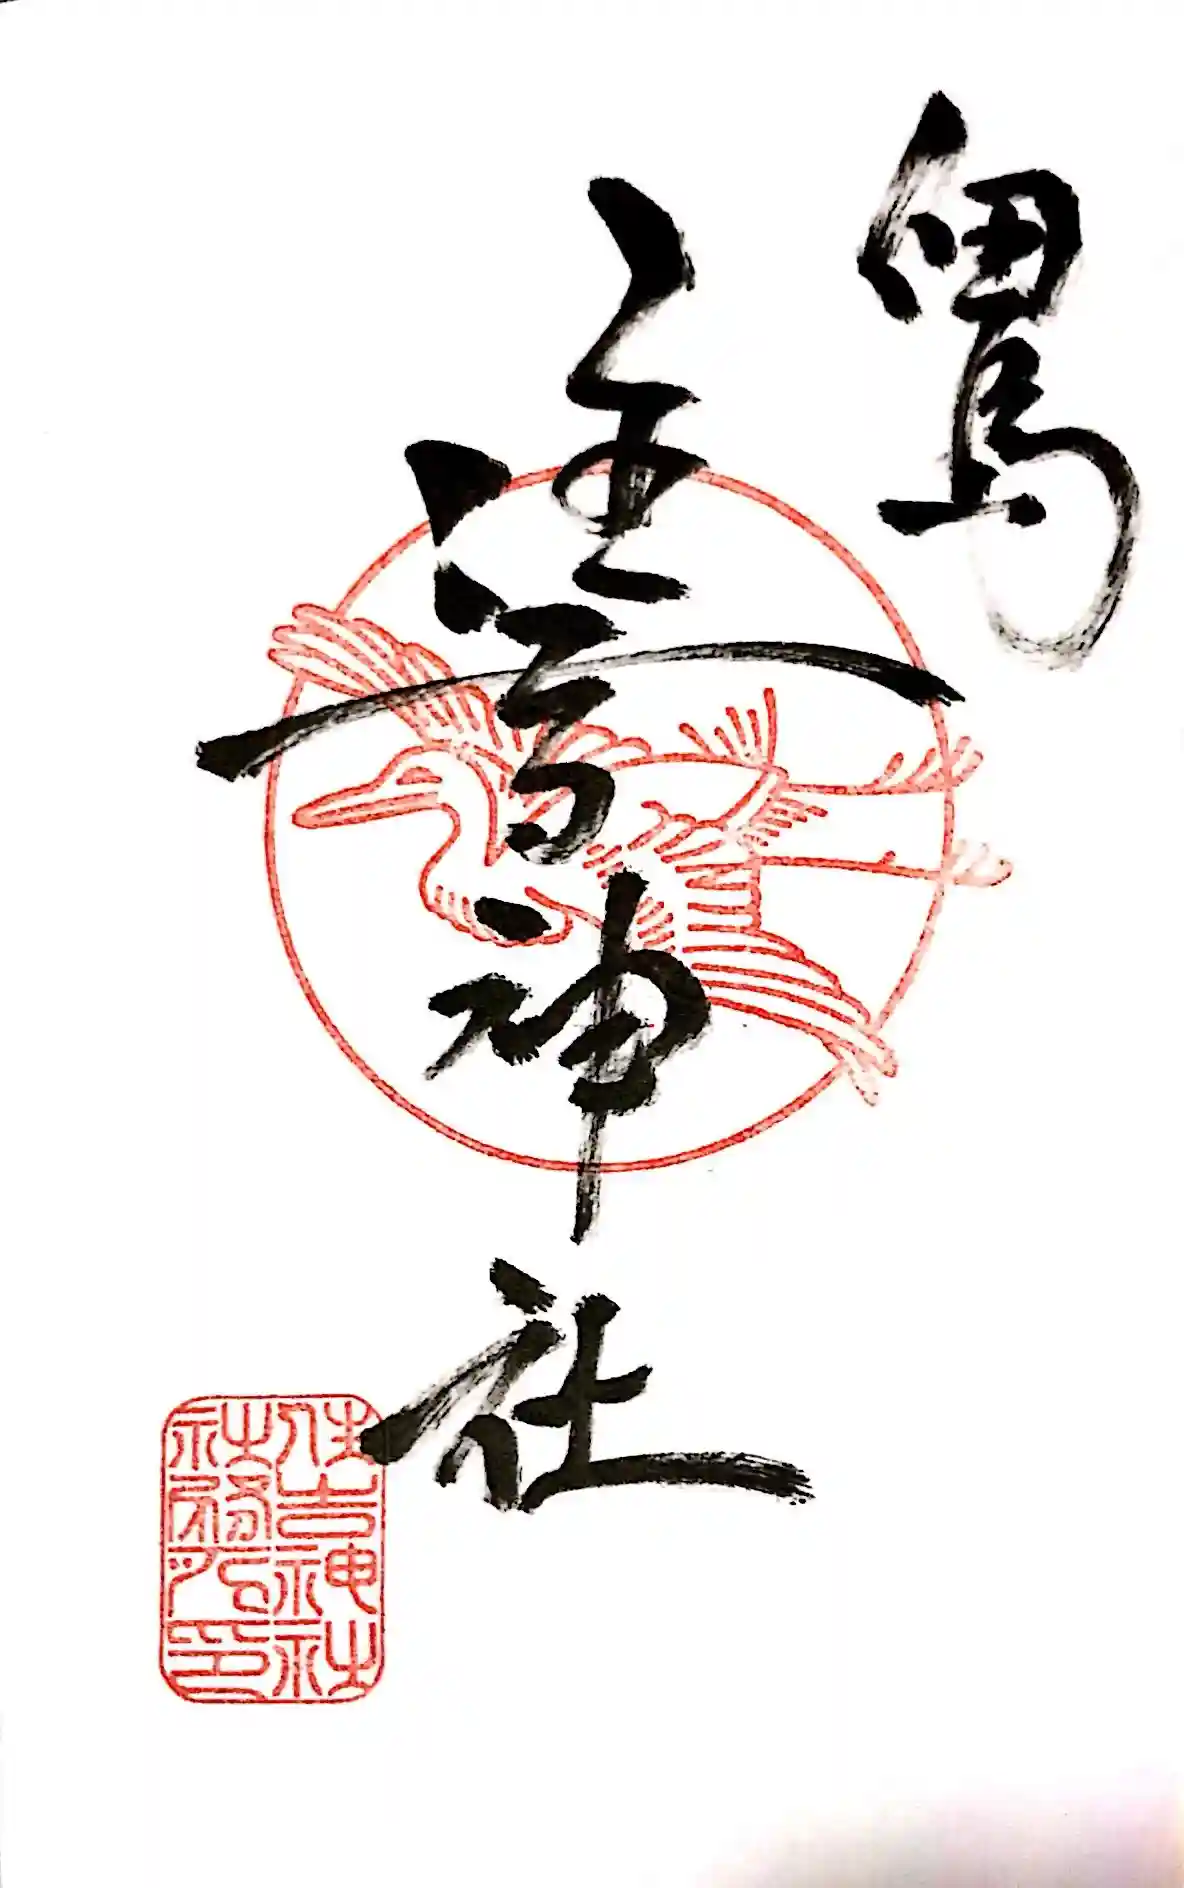 住吉神社
住吉神社
社務所印